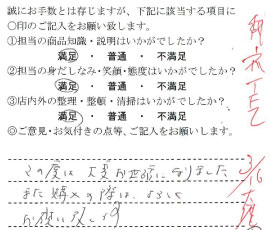 誠にお手数とは存じますが、下記に該当する項目に
〇印のご記入をお願い致します。
①担当の商品知識・説明はいかがでしたか?
満足 ・ 普通 ・ 不満足
②担当の身だしなみ・笑顔・態度はいかがでしたか?
満足 ・ 普通 ・ 不満足
③店内外の整理・整頓・清掃はいかがでしたか?
満足 ・ 普通 ・ 不満足
◎ご意見・お気付きの点等、ご記入をお願いします。
この度は大変お世話になりました
また購入の際は、よろしく
お願い致します
3/16